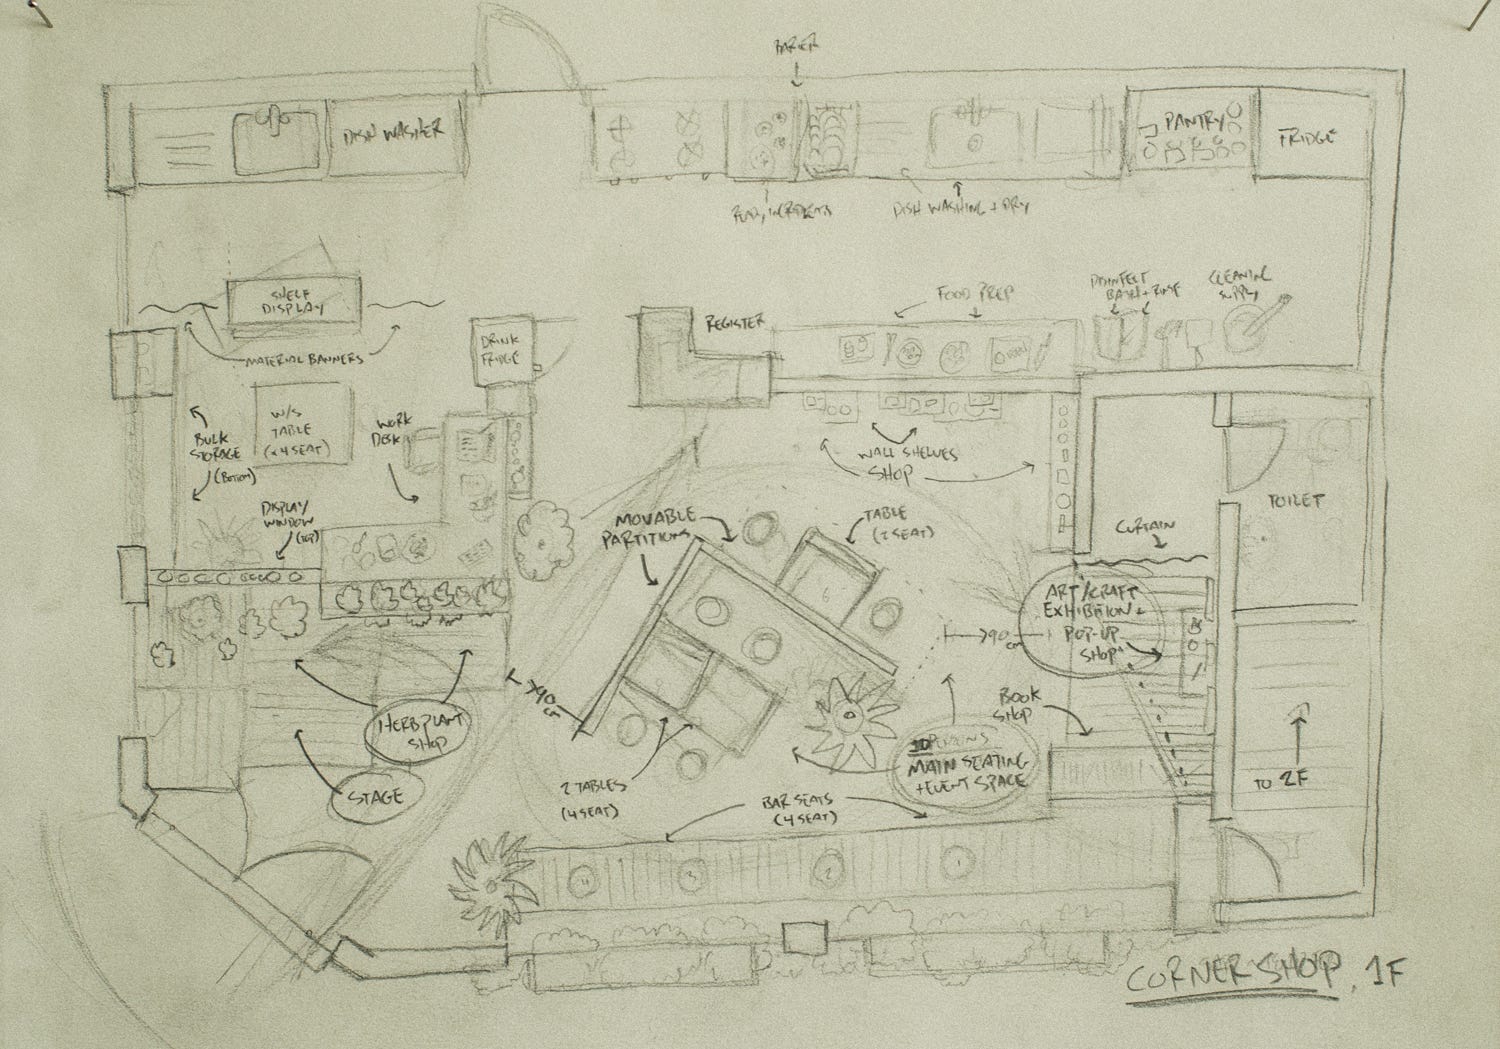 BARIER
DISH WASHER
PANTRY
FRIDGE
DISH WASHING + DRY
SHELF
DISPLAY
MATERIAL BANNERS
DRINK
FRIDGE
REGISTER
FOOD PREP
CLEANING
SUPPLY
W/S
TABLE
(x4SEAT)
WORK
DESK
BULK
STORAGE
(BOTTOM)
DISPLAY
WINDOW
(TOP)
WALL SHELVES
SHOP
TOILET
CURTAIN
MOVABLE
PARTITIONS
TABLE
(2 SEAT)
ART/CRAFT
EXHIBITION +
POP-UP
SHOP
>90
cm
>90
HERB PLANT
SHOP
STAGE
BOOK
SHOP
TO 2F
10 PERSONS
MAIN SEATING
+ EVENT SPACE
2 TABLES
(4 SEAT)
BAR SEATS
(4 SEAT)
4
3
2
1
CORNER SHOP, 1F